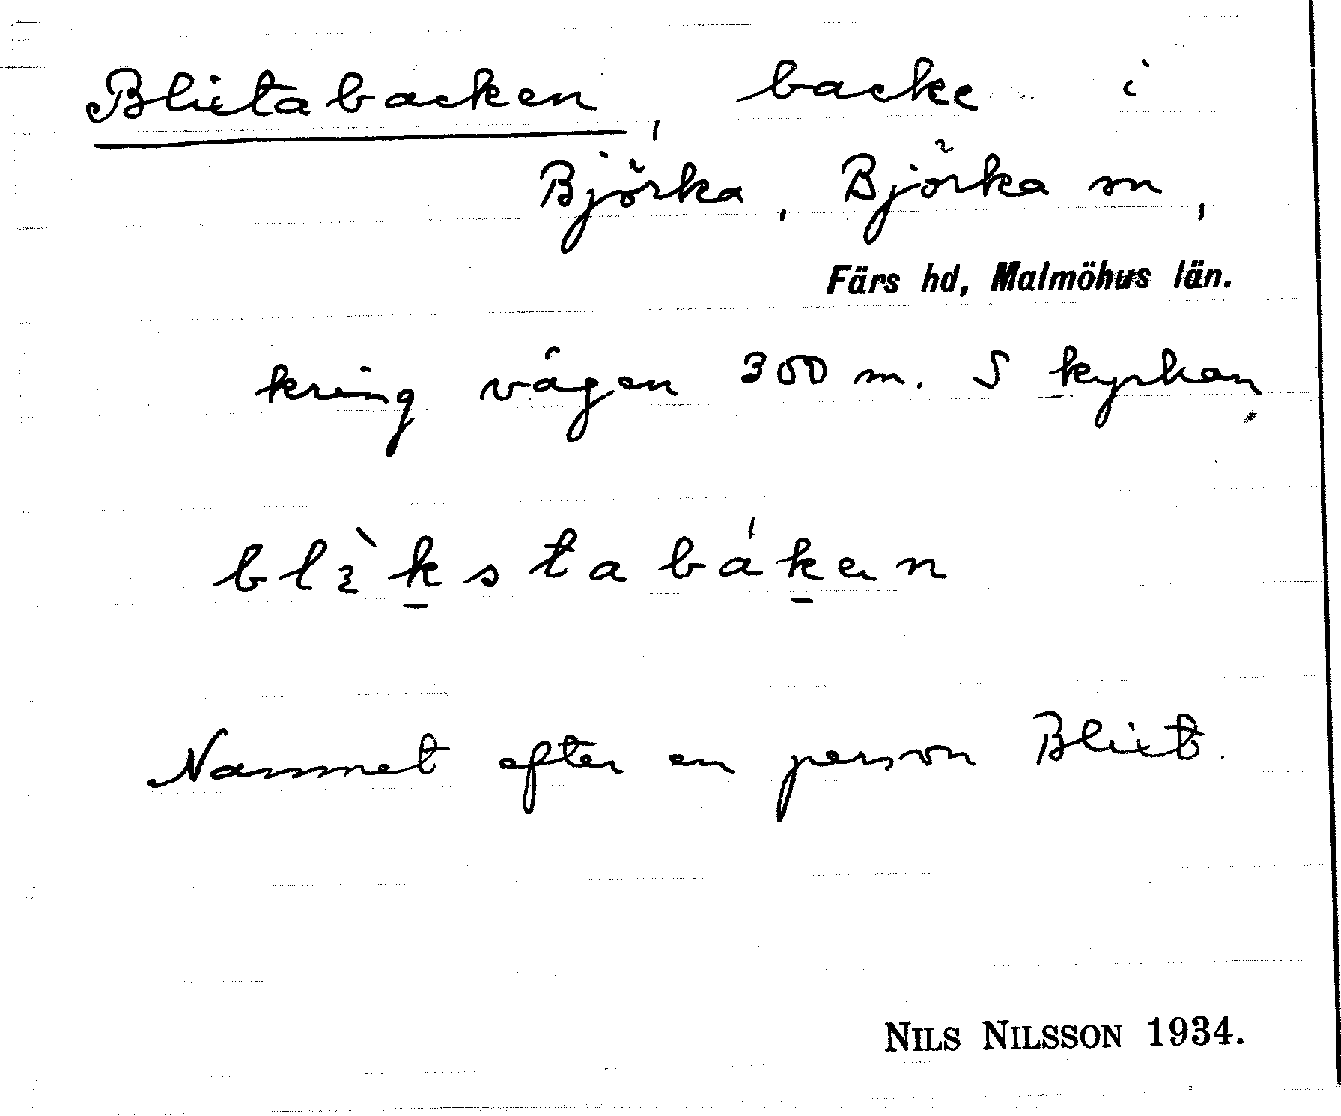 Blixtabacken, backe i
Björka, Björka sn,
Färs hd, Malmöhus län.
kring vägen 300 m. S kyrkan.
blìkstabákan
Namnet efter en person Blixt.
NILS NILSSON 1934.